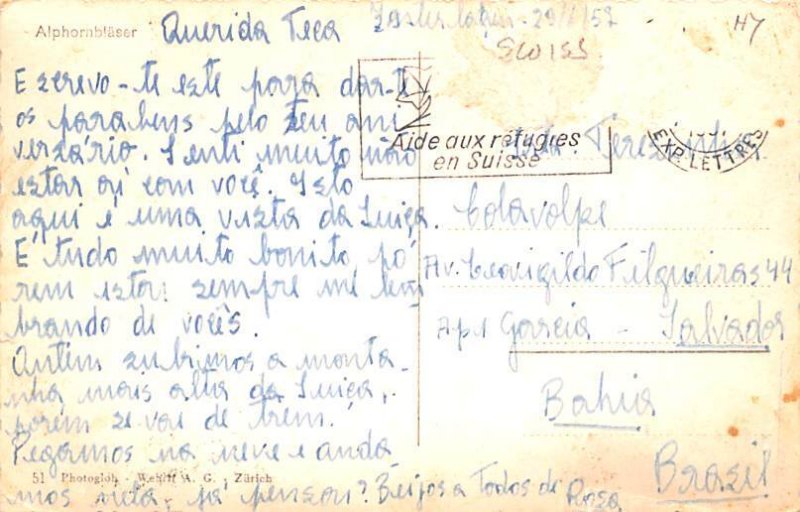 Alphornbläser
Querida Teca
29/6/57
SWISS
H7
Escrevo-te este para dar-te
os parabens pelo teu ani
versário. Senti muito não
estar aí com você. Isto
aqui é uma vista da Suiça.
É tudo muito bonito, po
rem estou sempre me lem
brando de vocês.
Ontem subimos a monta-
nha mais alta da Suiça,
porém se vai de trem.
Pegamos na neve e anda
mos nela, já pensou? Beijos a Todos de Rosa
51 Photoglob - Wehrli A. G., Zürich
Aide aux réfugiés
en Suisse
EXP. LETTRES
Colavolpe
Av. Leovigildo Filgueiras 44
Garcia - Salvador
Bahia
Brazil